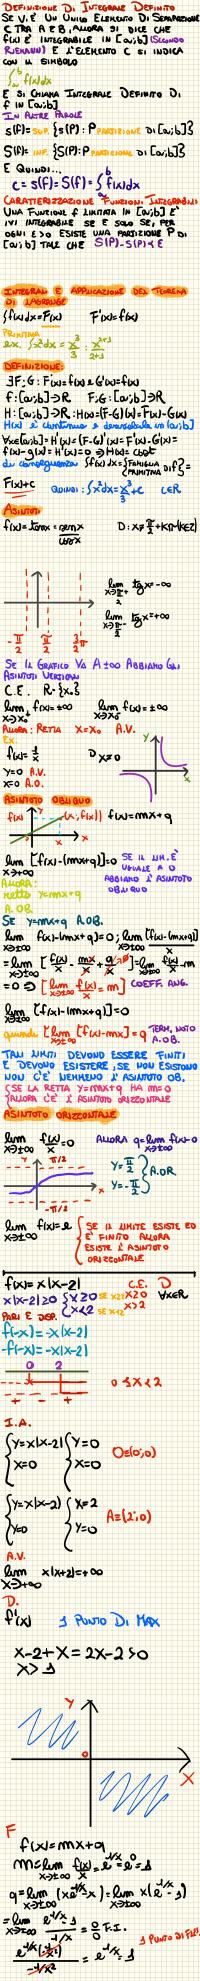 DEFINIZIONE DI INTEGRALE DEFINITO
SE V.E' UN UNICO ELEMENTO DI SEPARAZIONE
C TRA A E B, ALLORA SI DICE CHE
f(x) E' INTEGRABILE IN [a;b] (SECONDO
RIEMANN) E L'ELEMENTO C SI INDICA
CON IL SIMBOLO
∫ₐᵇ f(x)dx
E SI CHIAMA INTEGRALE DEFINITO DI
f IN [a;b]
IN ALTRE PAROLE
s(f)= SUP. {s(P): P PARTIZIONE DI [a;b]}
S(f)= INF. {S(P): P PARTIZIONE DI [a;b]}
E QUINDI...
c = s(f) = S(f) = ∫ₐᵇ f(x)dx
CARATTERIZZAZIONE FUNZIONI INTEGRABILI
UNA FUNZIONE f LIMITATA IN [a;b] E'
IVI INTEGRABILE SE E SOLO SE, PER
OGNI ε>0 ESISTE UNA PARTIZIONE P DI
[a;b] TALE CHE S(P)-s(P)<ε
INTEGRALI E APPLICAZIONE DEL TEOREMA
DI LAGRANGE
∫f(x)dx=F(x) F'(x)=f(x)
PRIMITIVA
ex. ∫x²dx = x³/3 : x²⁺¹/2+1
DEFINIZIONE:
∃F;G: F'(x)=f(x) e G'(x)=f(x)
f:[a;b]→R F;G:[a;b]→R
H:[a;b]→R: H(x)=(F-G)(x)=F(x)-G(x)
H(x) è continua e derivabile in [a;b]
∀x∈[a;b]=H'(x)=(F-G)'(x)=F'(x)-G'(x)=
f(x)-g(x)=H'(x)=0 ⇒ H(x)=cost
di conseguenza ∫f(x)dx={FAMIGLIA PRIMITIVA DI f}=
F(x)+C QUINDI: ∫x²dx=x³/3+C C∈R
ASINTOTI
f(x)=tanx=senx/cosx D: x≠π/2+kπ (k∈Z)
lim x→π/2 tgx=-∞
lim x→π/2⁻ tgx=+∞
-π/2 π/2 3/2π
SE IL GRAFICO VA A ±∞ ABBIAMO GLI
ASINTOTI VERTICALI
C.E. R-{x₀}
lim x→x₀⁺ f(x)=±∞ lim x→x₀⁻ f(x)=±∞
ALLORA: RETTA x=x₀ A.V.
Ex.
f(x)=1/x D x≠0
y=0 A.V.
x=0 A.O.
y
x
ASINTOTO OBLIQUO
f(x) (x;f(x)) f(x)=mx+q
x
lim x→+∞ [f(x)-(mx+q)]=0 SE IL LIM. E'
UGUALE A 0
ABBIAMO L'ASINTOTO
OBLIQUO
ALLORA:
retta y=mx+q
A.OB.
SE y=mx+q A.OB.
lim x→±∞ f(x)-(mx+q)=0; lim x→±∞ [f(x)-(mx+q)]/x
=lim x→±∞ [f(x)/x-mx/x+q/x]=lim x→±∞ f(x)/x-m
=0 ⇒ [lim x→±∞ f(x)/x=m] COEFF. ANG.
lim x→±∞ [f(x)-(mx+q)]=0
quindi [lim x→±∞ [f(x)-mx]=q TERM. NOTO
A.OB.
TALI LIMITI DEVONO ESSERE FINITI
E DEVONO ESISTERE; SE NON ESISTONO
NON C'E' NEMMENO L'ASINTOTO OB.
{SE LA RETTA Y=MX+Q HA M=0
ALLORA C'E' L'ASINTOTO ORIZZONTALE
ASINTOTO ORIZZONTALE
lim x→±∞ f(x)/x=0 ALLORA q=lim f(x)-0
x→±∞
π/2
-π/2
y=π/2
y=-π/2 } A.OR
lim x→±∞ f(x)=l {SE IL LIMITE ESISTE ED
E' FINITO ALLORA
ESISTE L'ASINTOTO
ORIZZONTALE
f(x)=x|x-2| C.E. D
x|x-2|≥0 {x≥0 SE x≥2 x≥0 ∀x∈R
x<2 SE x<2 x>2
PARI E DISP.
f(-x)=-x|x-2|
-f(-x)=-x|x-2|
0 2
+ - +
0≤x<2
I.A.
{y=x|x-2| {y=0 O=(0;0)
x=0 x=0
{y=x|x-2| {x=2 A=(2;0)
y=0 y=0
A.V.
lim x→+∞ x|x+2|=+∞
D.
f'(x) 1 PUNTO DI MAX
x-2+x=2x-2>0
x>1
y
0
x
F
f(x)=mx+q
m=lim x→±∞ f(x)/x=e^-1/x=e⁰=1
q=lim x→±∞ (xe^-1/x-x)=lim x→±∞ x(e^-1/x-1)
=lim x→±∞ e^-1/x-1/1/x=0/0 F.I.
e^-1/x(1/x²)/-1/x²=e^-1/x=1